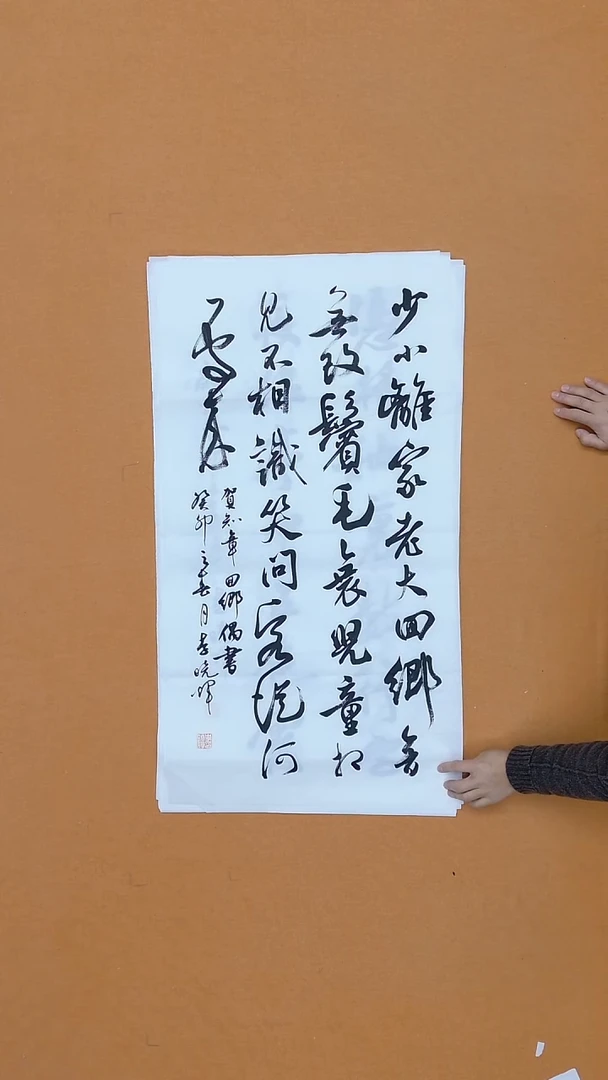 少小離家老大回鄉音
無改鬢毛衰兒童相
見不相識笑問客從何
處來
賀知章回鄉偶書
癸卯之春月李晓晖